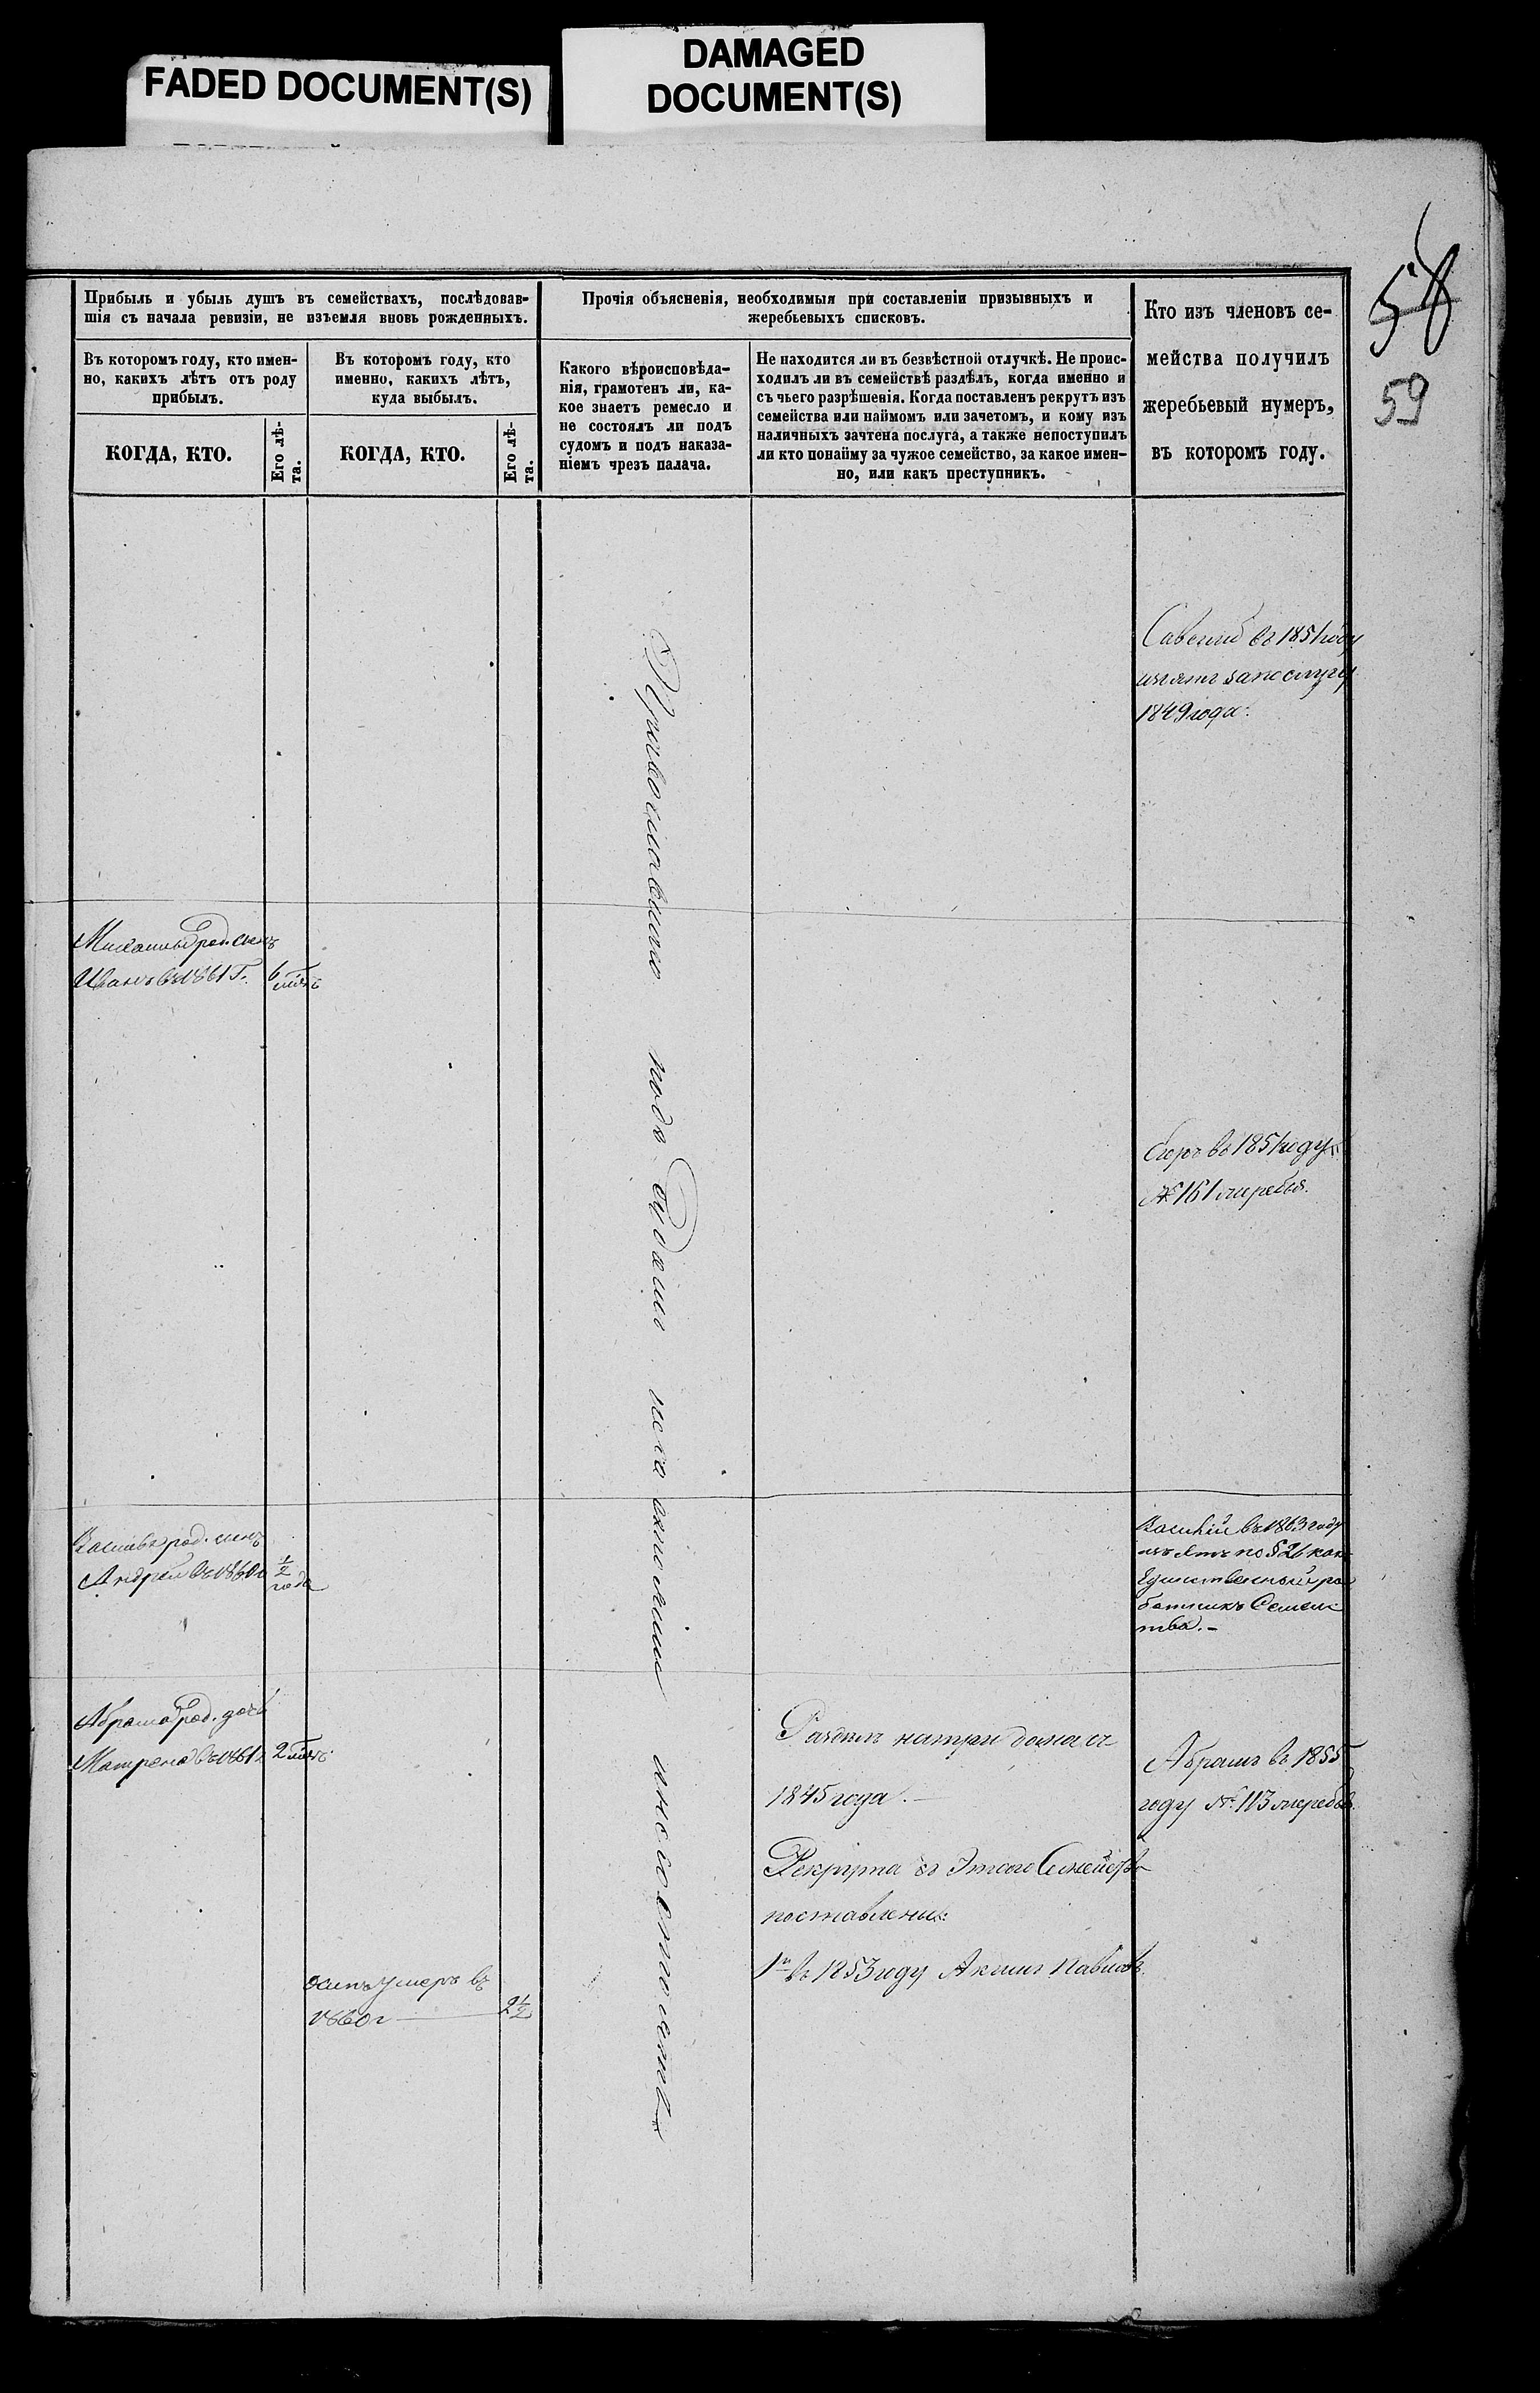 FADED DOCUMENT(S)
DAMAGED
DOCUMENT(S)
58
59
Прибыль и убыль душъ въ семействахъ, послѣдовав-
шія съ начала ревизіи, не изъемля вновь рожденныхъ.
Въ которомъ году, кто имен-
но, какихъ лѣтъ отъ роду
прибылъ.
Въ которомъ году, кто
именно, какихъ лѣтъ,
куда выбылъ.
КОГДА, КТО.
Его лѣ-
та.
КОГДА, КТО.
Его лѣ-
та.
Прочія объясненія, необходимыя при составленіи призывныхъ и
жеребьевыхъ списковъ.
Какого вѣроисповѣда-
нія, грамотенъ ли, ка-
кое знаетъ ремесло и
не состоялъ ли подъ
судомъ и подъ наказа-
ніемъ чрезъ палача.
Не находится ли въ безвѣстной отлучкѣ. Не проис-
ходилъ ли въ семействѣ раздѣлъ, когда именно и
съ чьего разрѣшенія. Когда поставленъ рекрутъ изъ
семейства или наймомъ или зачетомъ, и кому изъ
наличныхъ зачтена послуга, а также непоступилъ
ли кто понайму за чужое семейство, за какое имен-
но, или какъ преступникъ.
Кто изъ членовъ се-
мейства получилъ
жеребьевый нумеръ,
въ которомъ году.
Савелий въ 1851 году
изъятъ за послугу
1849 года.
род. сынъ
Иванъ въ 1861 г. 6
лѣтъ
Православнаго подъ судомъ
въ 1851 году
№ 161 жеребья.
род. сынъ
Андрей въ 1860 г ½
года
Василій въ 1863 году
изъятъ по § 26 какъ
Единственный ра
ботникъ Семейс
тва.-
Абрама род. дочь
Матрена въ 1861 г. 2
Раздѣлъ на три дома съ
1845 года.
Рекрута съ Этого Семейства
поставлены:
1й въ 1853 году Павловъ.
Абрамъ въ 1855
году № 113 жеребья.
умеръ въ
1860 г 2½